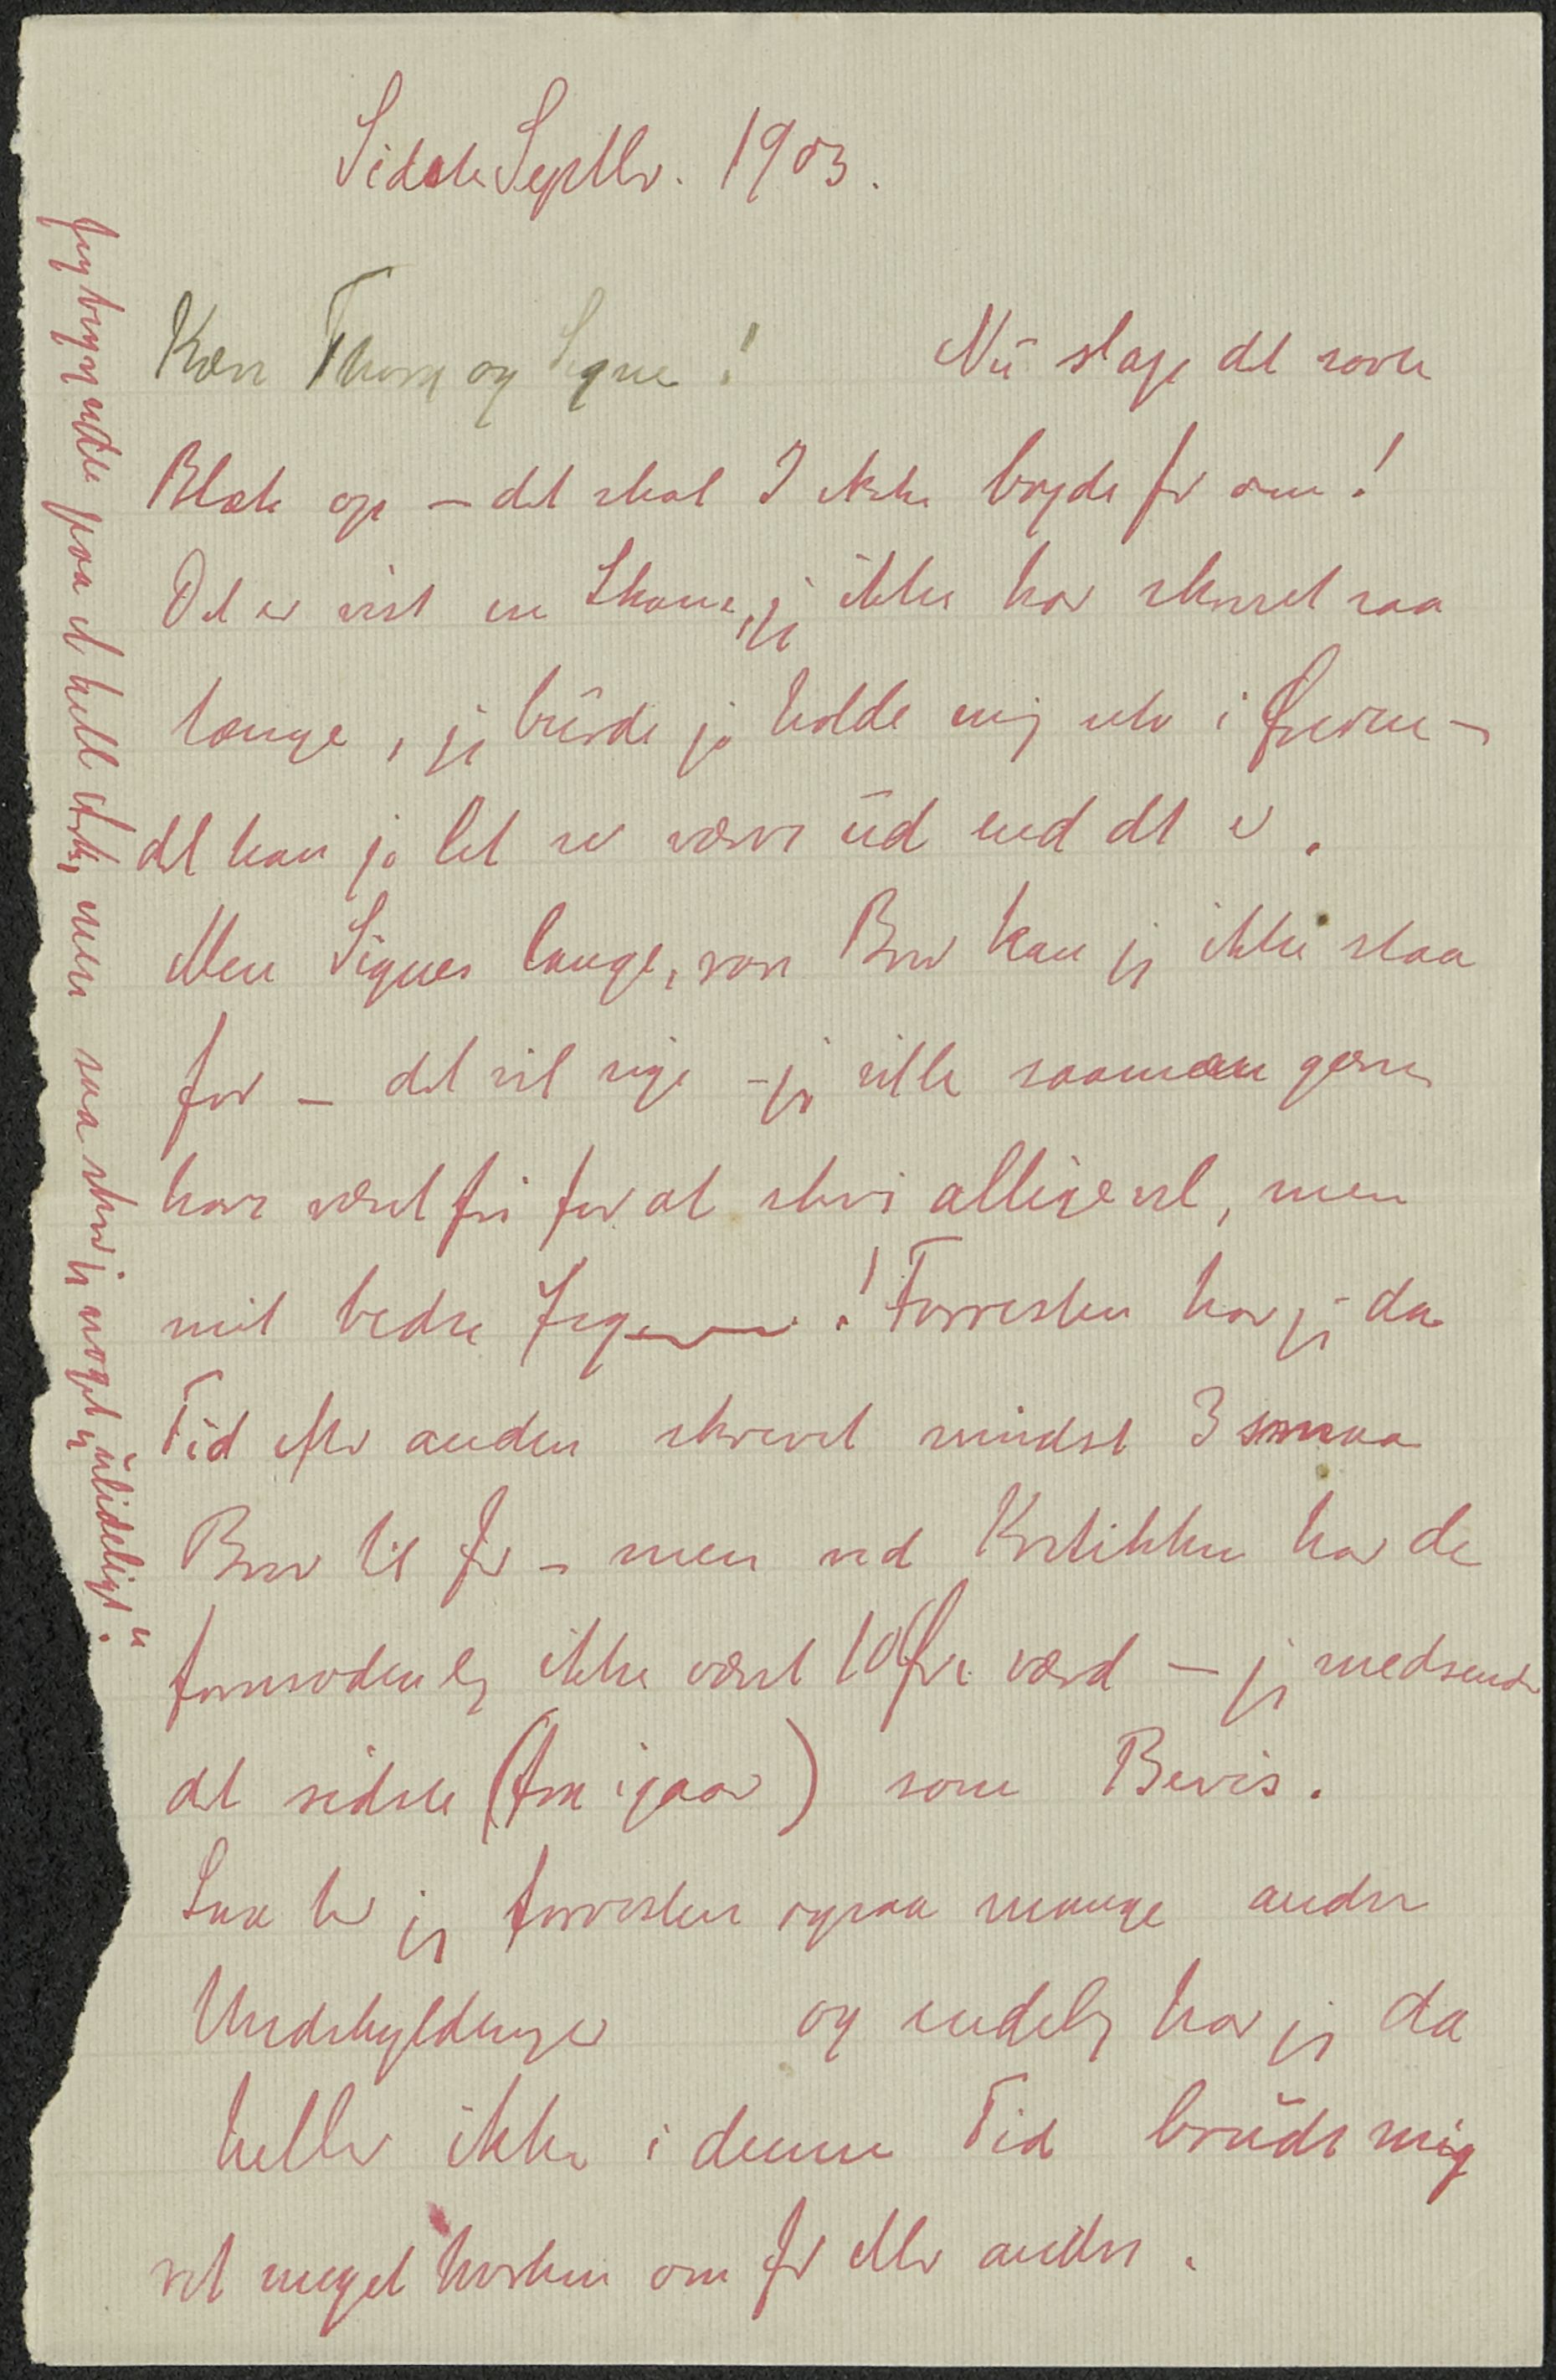 Sidste Septbr. 1903.
Kære Thora og Signe! Nu slap det sorte
Blæk op – det skal I ikke bryde Jer om!
Det er vist en Skam, jeg ikke har skrevet saa
længe, jeg burde jo holde mig selv i Ørerne –
det kan jo let se værre ud end det er.
Men Signes lange, rare Brev kan jeg ikke staa
for – det vil sige – jeg ville saamæn gerne
have været fri for at skrive alligevel, men
mit bedre Jeg ! Forresten har jeg da
Tid efter anden skrevet mindst 3 smaa
Breve til Jer – men ved Kritikken har de
formodentlig ikke været 10 Øre værd – jeg medsender
det sidste (fra igaar) som Bevis.
Saa har jeg forresten ogsaa mange andre
Undskyldninger og endelig har jeg da
heller ikke i denne Tid brudt mig
ret meget hverken om Jer eller andre.
Jeg begyndte paa et helt Ark, men saa skrev jeg noget „ulideligt“.